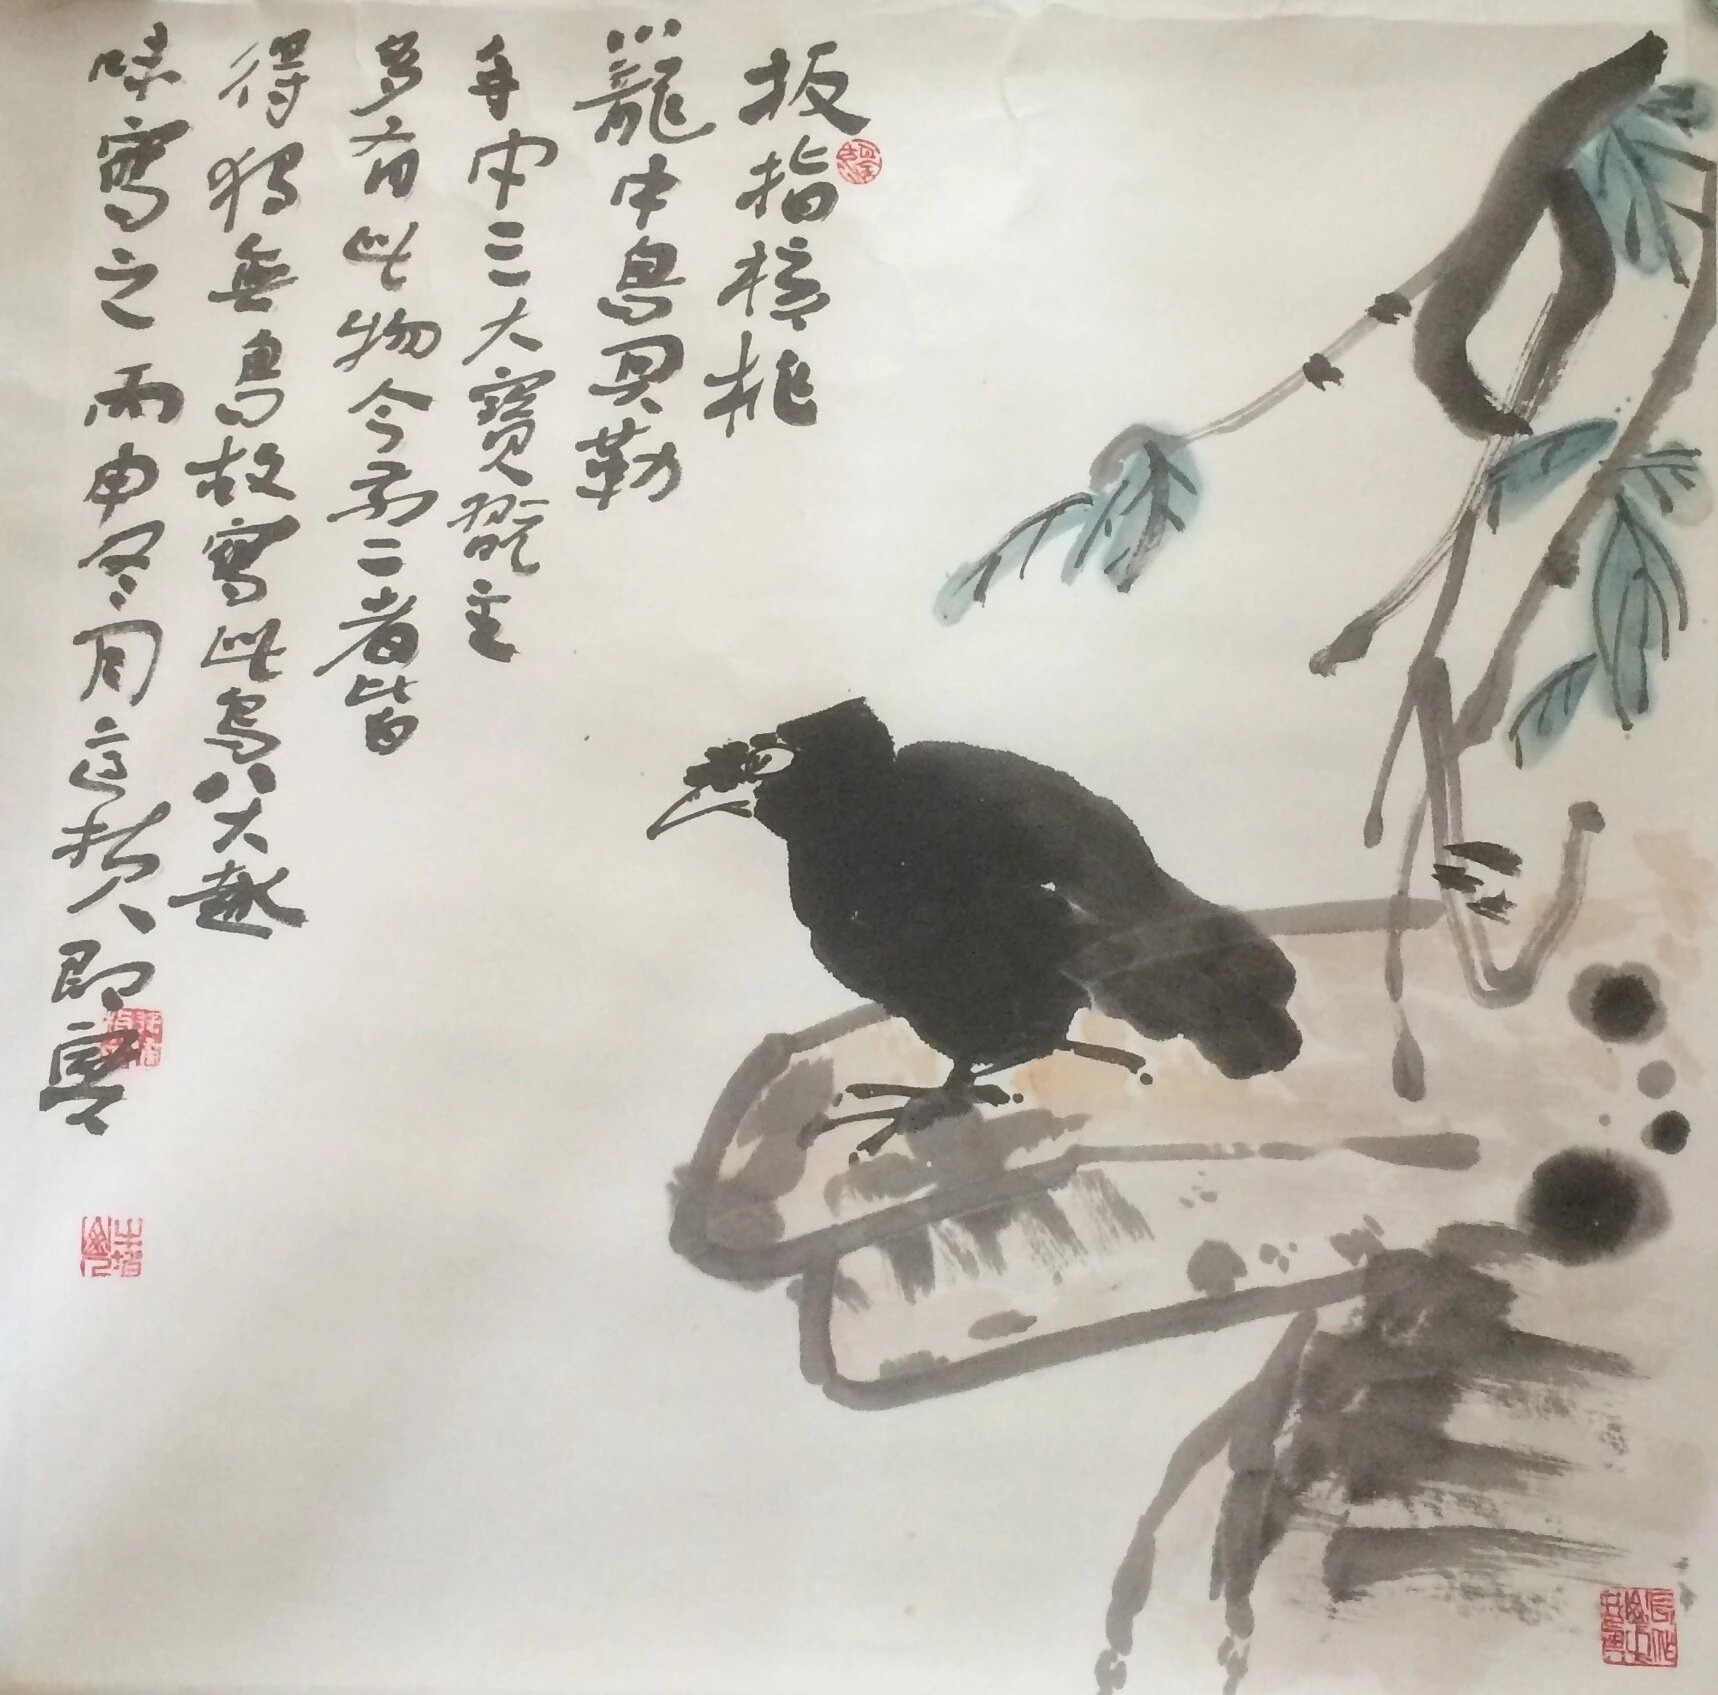 扳指核桃
籠中鳥貝勒
手中三大寶翫主
多有此物今予二者皆
得独無鳥故寫此鳥八大趣
味寫之丙申冬月
即寫